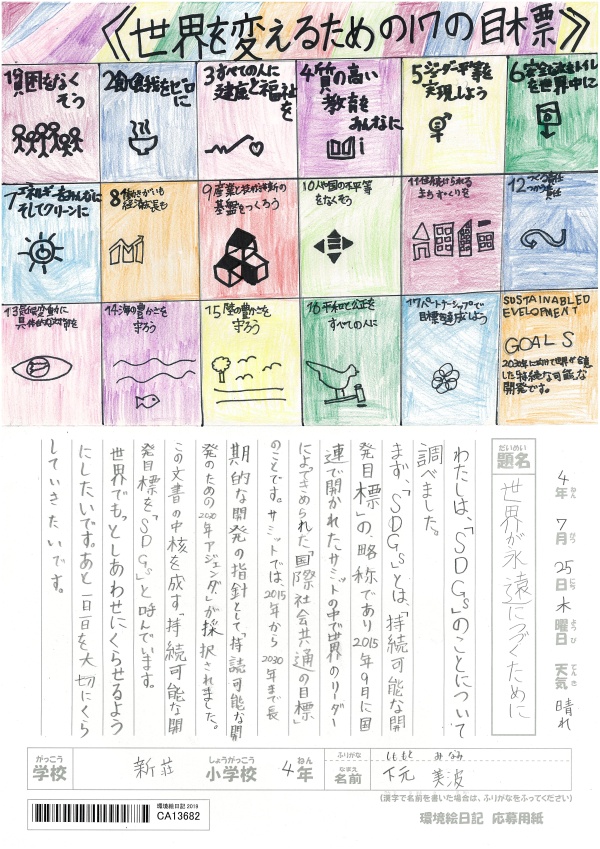 《世界を変えるための17の目標》
1貧困をなくそう
2飢餓をゼロに
3すべての人に健康と福祉を
4質の高い教育をみんなに
5ジェンダー平等を実現しよう
6安全な水とトイレを世界中に
7エネルギーをみんなにそしてクリーンに
8働きがいも経済成長も
9産業と技術革新の基盤をつくろう
10人や国の不平等をなくそう
11住み続けられるまちづくりを
12つくる責任つかう責任
13気候変動に具体的な対策を
14海の豊かさを守ろう
15陸の豊かさを守ろう
16平和と公正をすべての人に
17パートナーシップで目標を達成しよう
SUSTAINABLED
EVELOPMENT
GOALS
2030年に向けて世界が合意した「持続可能な開発です。
4年ねん 7月がつ 25日にち 木曜日ようび 天気てんき 晴れ
だいめい
題名
世界が永遠につづくために
わたしは、「SDGs」のことについて
調べました。
まず、「SDGs」とは、「持続可能な開
発目標」の、略称であり2015年9月に国
連で開かれたサミットの中で世界のリーダー
によってきめられた「国際社会共通の目標」
のことです。サミットでは、2015年から2030年まで長
期的な開発の指針として、「持読可能な開
発のための2030年アジェンダ」が採択されました。
この文書の中核を成す「持続可能な開
発目標を「SDGs」と呼んでいます。
世界でもっとしあわせにくらせるよう
にしたいです。あと一日一日を大切にくら
していきたいです。
がっこう
学校
新荘
しょうがっこう
小学校
4
ねん
年
ふりがな
しももと みなみ
なまえ
名前
下元 美波
(漢字で名前を書いた場合は、ふりがなをふってください)
環境絵日記 2019
CA13682
環境絵日記 応募用紙